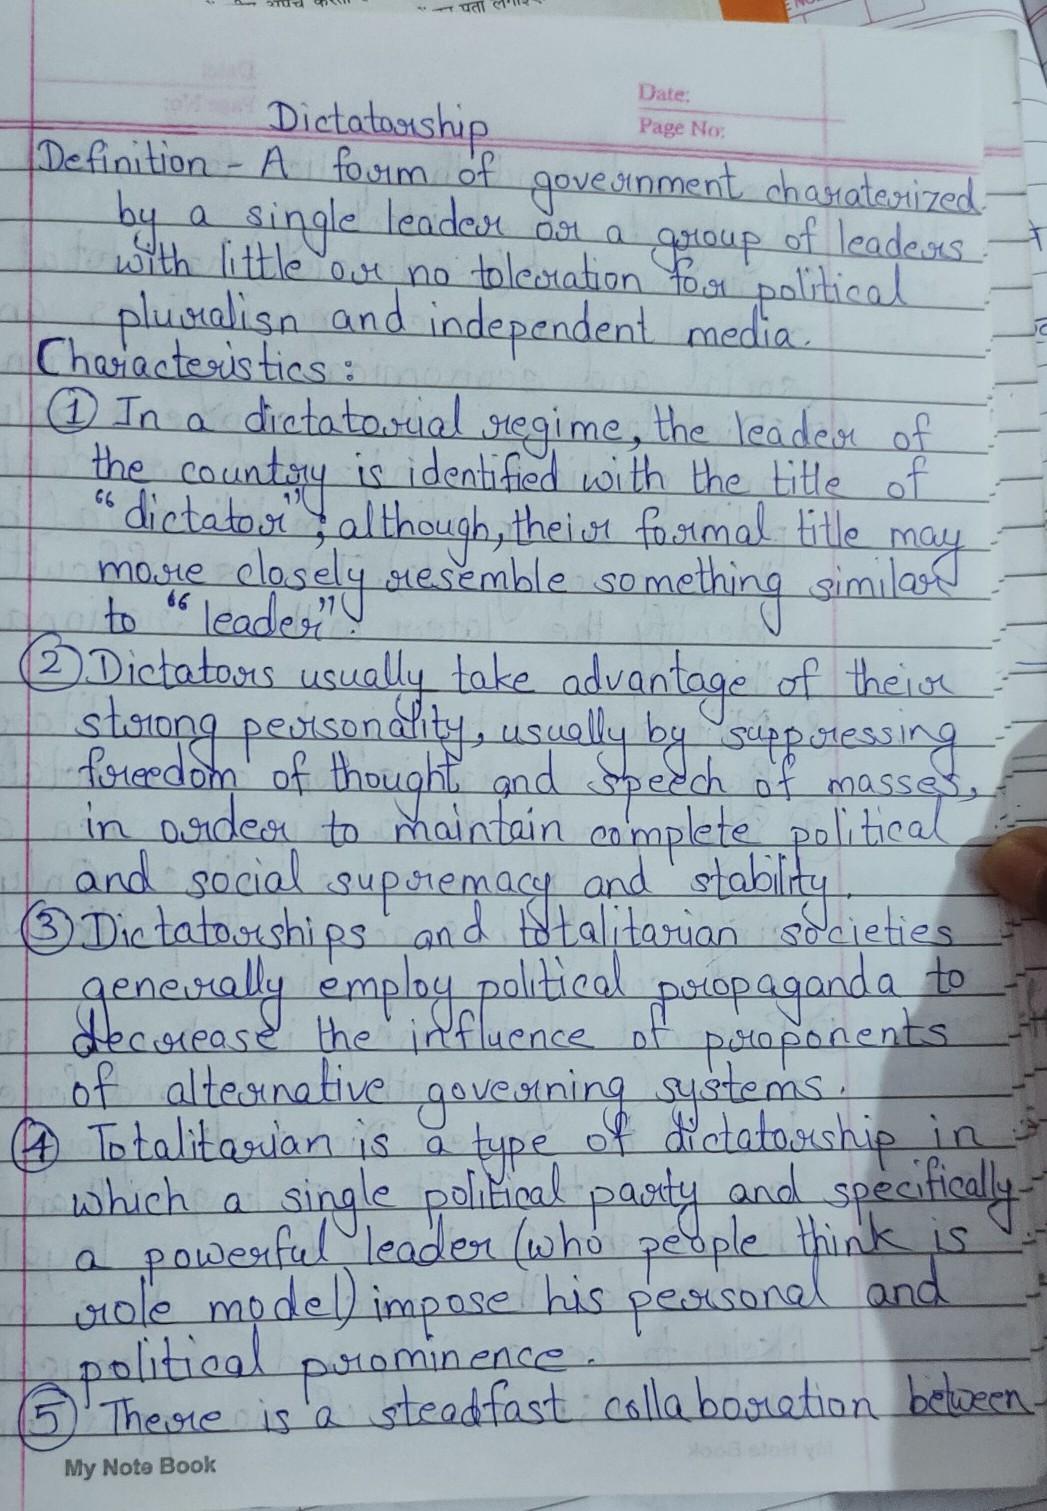 Date:
Page No:
Dictatorship
Definition - A form of government charaterized
by a single leader or a group of leaders
with little or no toleration for political
pluralisn and independent media.
Characteristics :
① In a dictatorial regime, the leader of
the country is identified with the title of
“dictator”; although, their formal title may
more closely resemble something similar
to “leader”.
② Dictators usually take advantage of their
strong personality, usually by suppressing
freedom of thought and speech of masses,
in order to maintain complete political
and social supremacy and stability.
③ Dictatorships and totalitarian societies
generally employ political propaganda to
decrease the influence of proponents
of alternative governing systems.
④ Totalitarian is a type of dictatorship in
which a single political party and specifically
a powerful leader (who people think is
role model) impose his personal and
political prominence.
⑤ There is a steadfast collaboration between
My Note Book